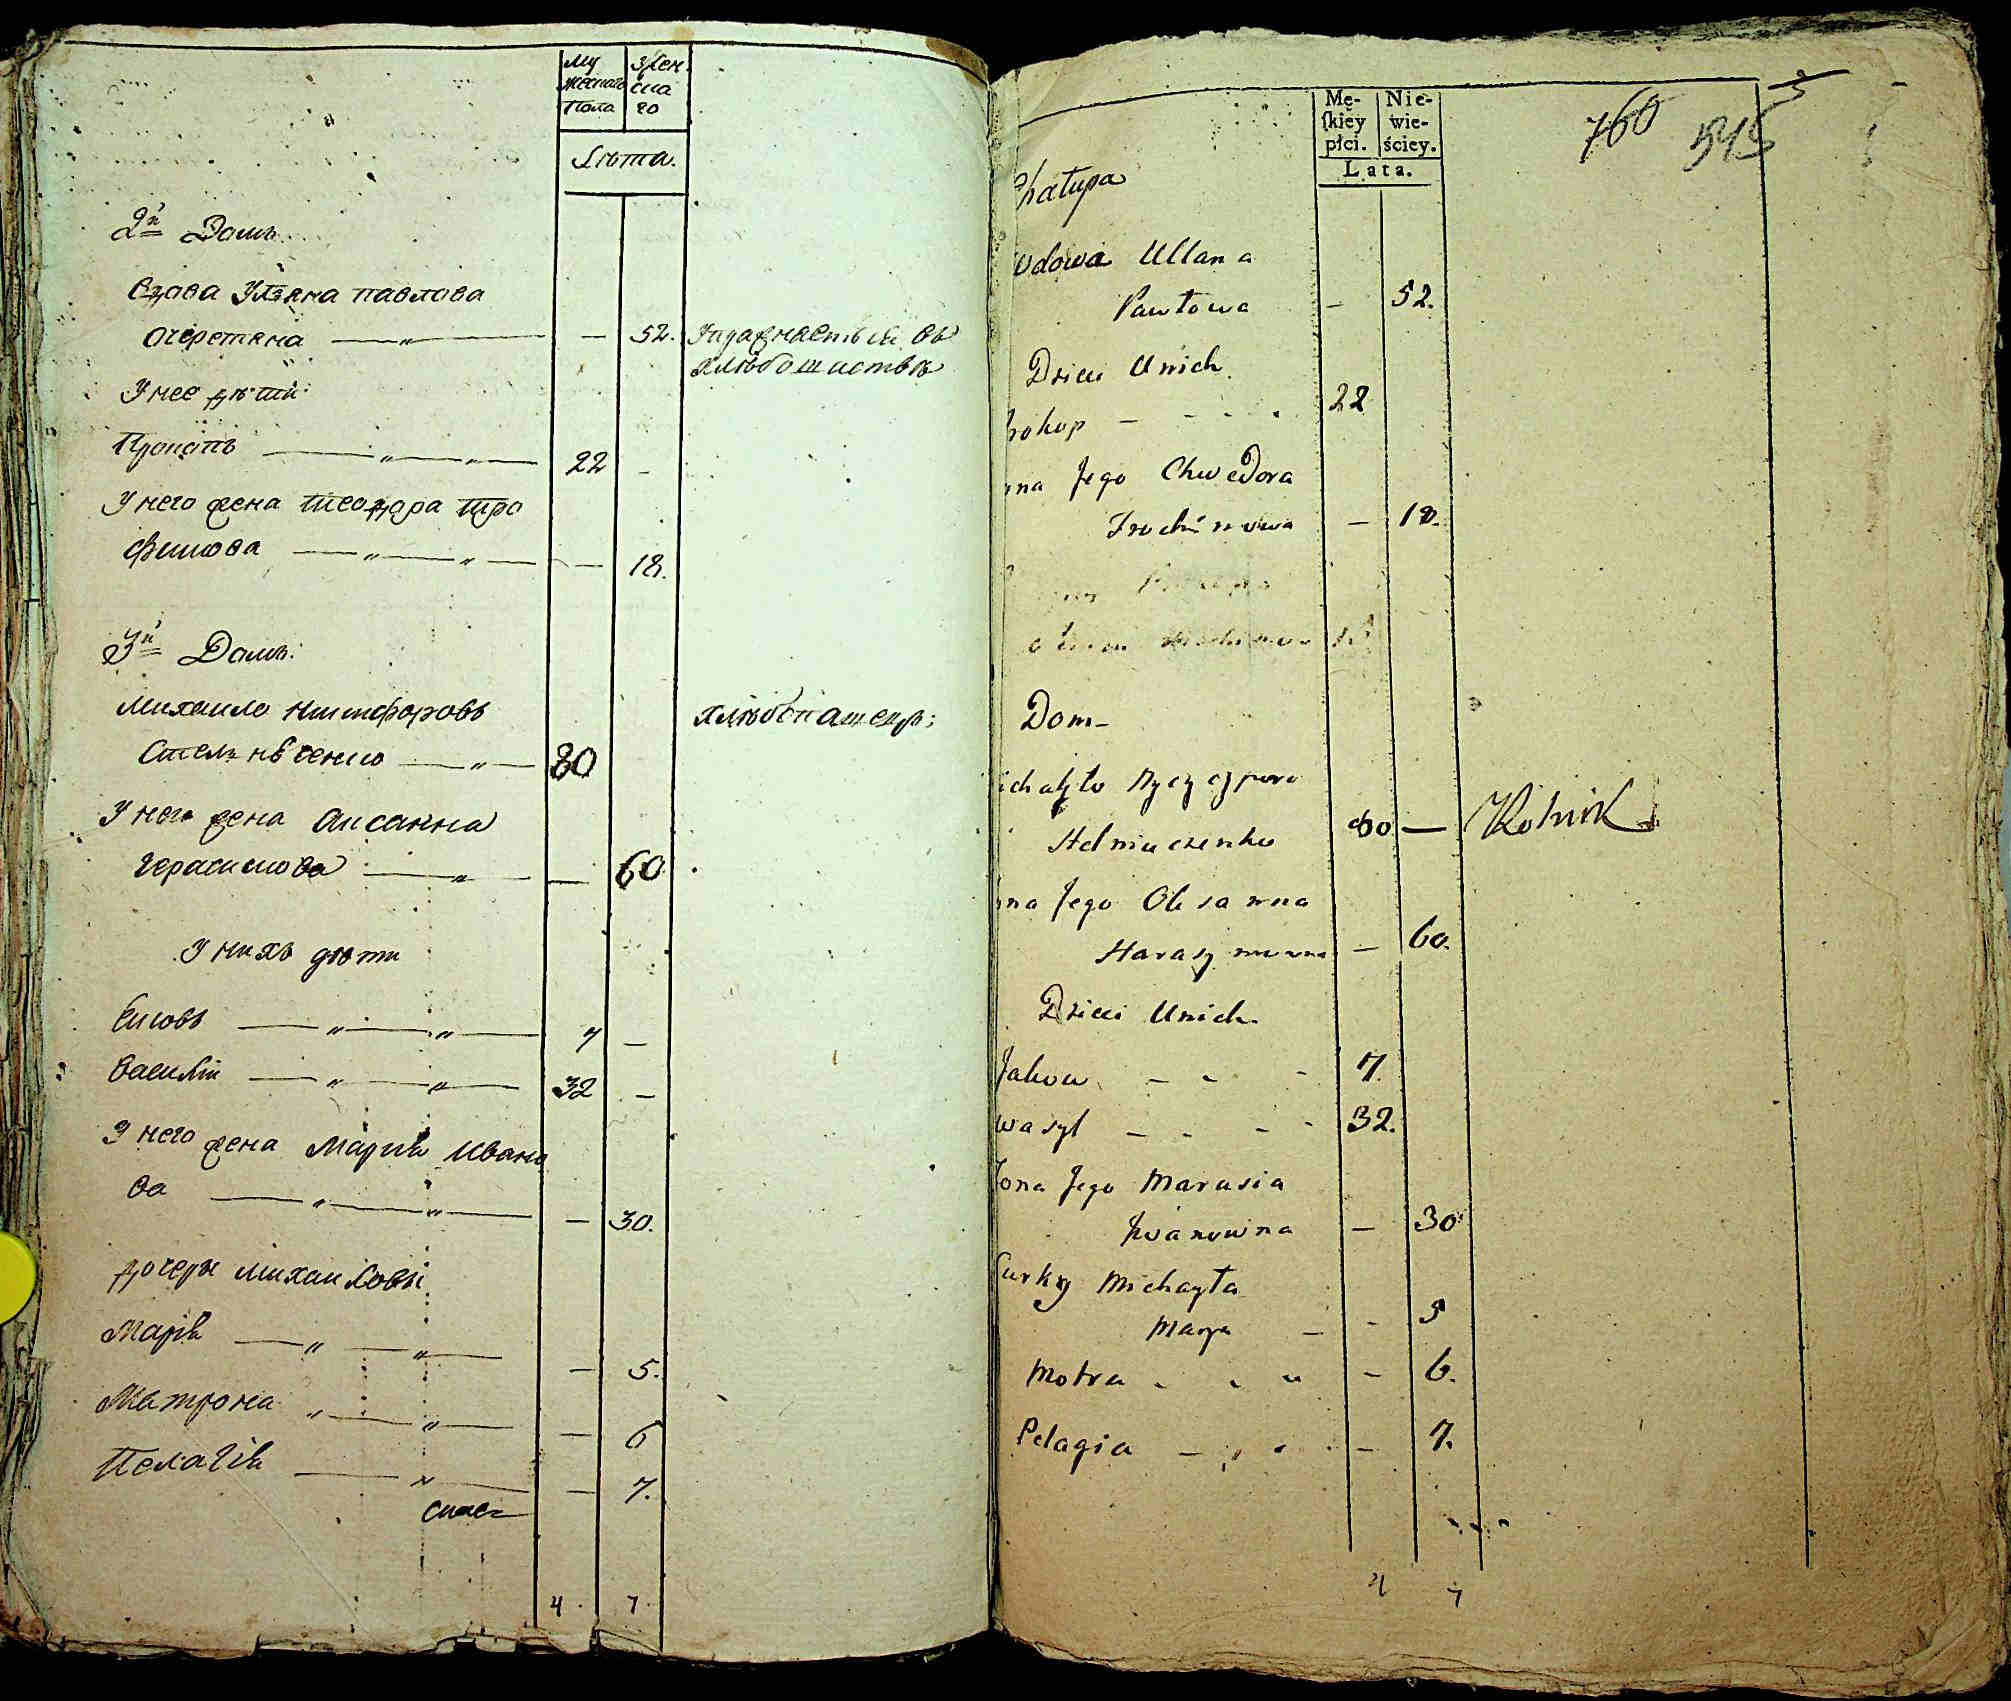 Му
жескаго
Пола
Жен
ска
го
Лѣта.
2й Домъ
Вдова Ульяна павлова
Очеретяна — 52. Упражняеться въ
хлѣбопашествѣ
У нее дѣти
Прокопъ 22 —
У него жена Теодора Тро
фимова — 18.
3й Домъ:
Михаило Никифоровъ хлѣбопашецъ;
Стельмѣченко 80
У него жена Аксанна
Герасимова — 60
У нихъ дѣти
Яковъ 7 —
Василій 32 —
У него жена Марія Ивано
ва — 30.
Дочеры Михайловы
Марія — 5.
Матрона — 6
Пелагія — 7.
4 7
Mę-
ſkiey
płci.
Nie-
wie-
ściey.
Lata.
760 545
Chałupa
Wdowa Ullana
Pawłowa — 52.
Dzieci Unich
Prokop 22
Żona Jego Chwedora
Trochimowa — 18.
Dom
Michayło Nyczypora
Stelmaczenko 80 — Rolnik
Żona Jego Oksanna
Harasymowna — 60.
Dzieci Unich
Jakow 7.
Wasyl 32.
Żona Jego Marusia
Iwanowna — 30
Curky Michayła
Marya — 5
Motra — 6.
Pelagia — 7.
4 7